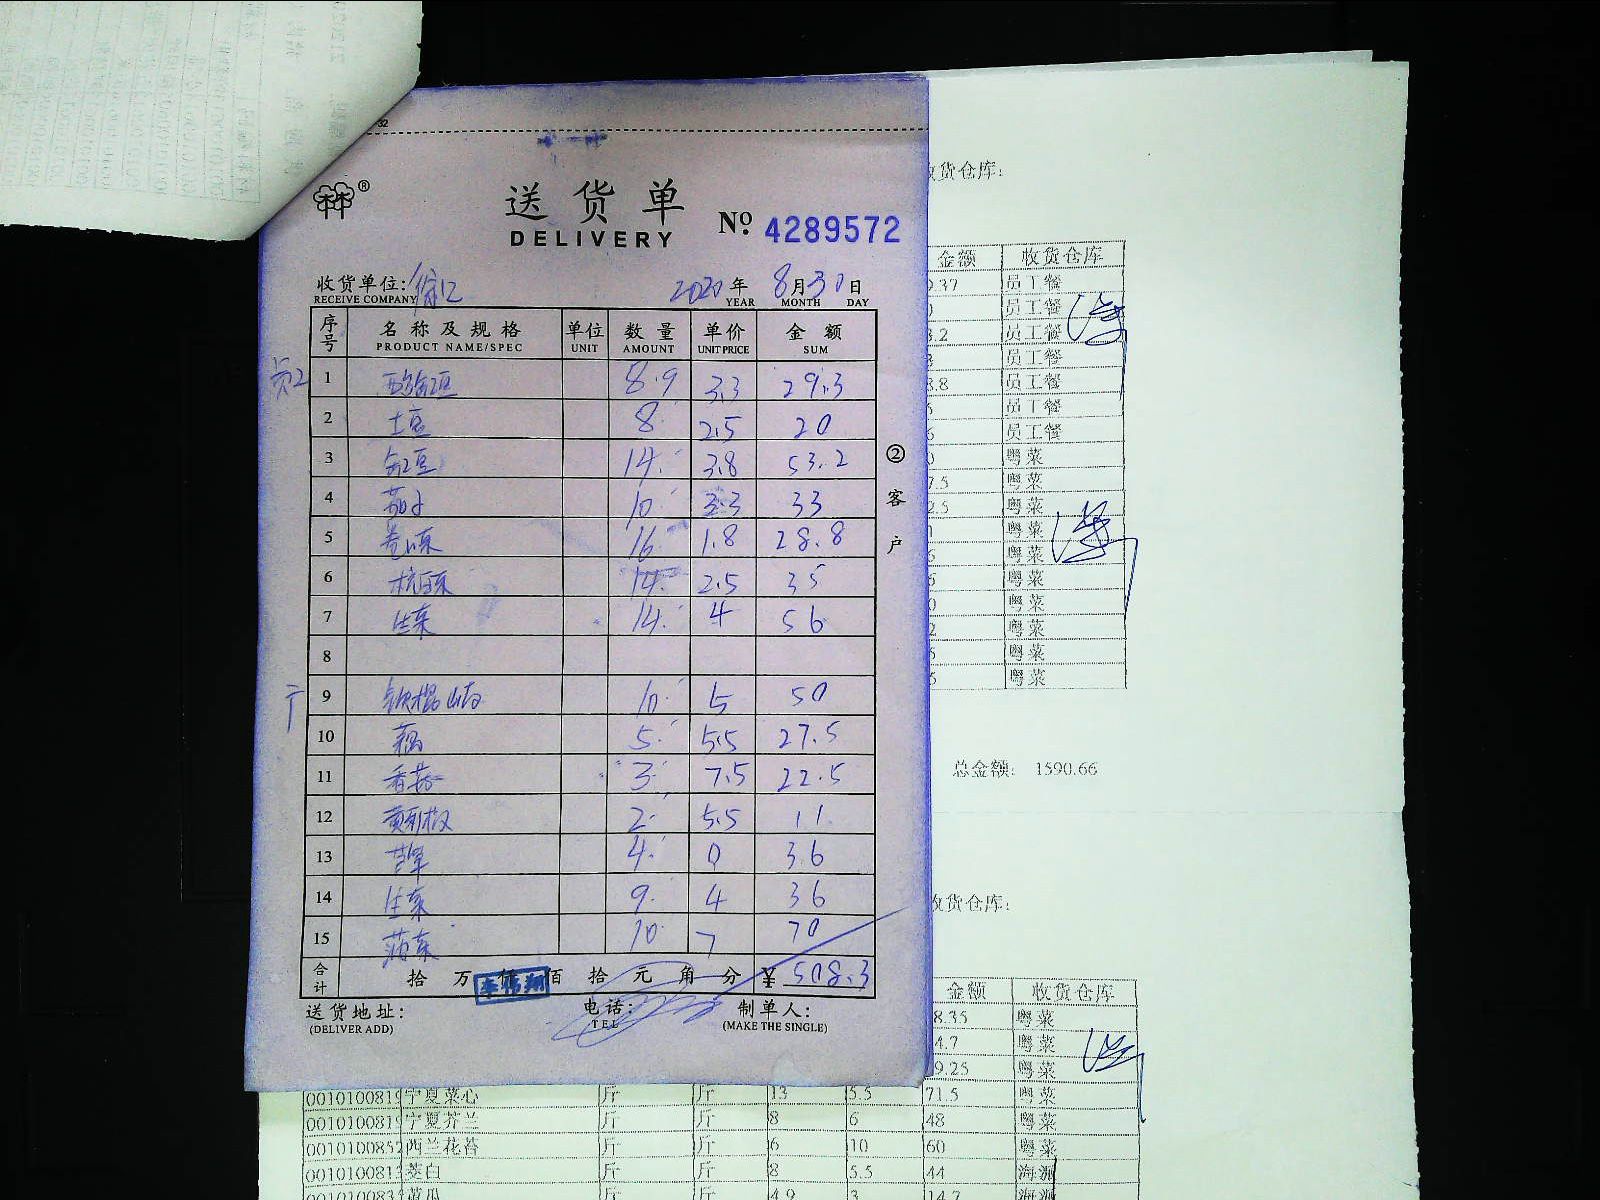 32
®
送货单
DELIVERY
No. 4289572
收货单位: 徐汇 2020年8月30日
RECEIVE COMPANY YEAR MONTH DAY
序号 名称及规格 单位 数量 单价 金额
PRODUCT NAME/SPEC UNIT AMOUNT UNIT PRICE SUM
员工
1 8.9 3.3 29.3
2 土豆 8 2.5 20
3 豆 14 3.8 53.2
4 茄子 10 3.3 33
5 卷心菜 16 1.8 28.8
6 杭白菜 14 2.5 35
7 生菜 14 4 56
8
9 铁棍山药 10 5 50
10 藕 5 5.5 27.5
11 香菇 3 7.5 22.5
12 黄彩椒 2 5.5 11
13 4 9 36
14 生菜 9 4 36
15 菠菜 10 7 70
合计 拾 万 仟 佰 拾 元 角 分 ¥ 508.3
李伟翔
送货地址: 电话: 制单人:
(DELIVER ADD) TEL (MAKE THE SINGLE)
②客户
收货仓库:
金额 收货仓库
.37 员工餐
员工餐
.2 员工餐
员工餐
.8 员工餐
员工餐
员工餐
粤菜
7.5 粤菜
2.5 粤菜
粤菜
粤菜
粤菜
粤菜
粤菜
粤菜
粤菜
总金额: 1590.66
收货仓库:
金额 收货仓库
8.35 粤菜
4.7 粤菜
9.25 粤菜
001010081 宁夏菜心 斤 斤 13 5.5 71.5 粤菜
001010081 宁夏芥兰 斤 斤 8 6 48 粤菜
001010085 西兰花苔 斤 斤 6 10 60 粤菜
001010081 茭白 斤 斤 8 5.5 44 海派
001010083 黄瓜 斤 斤 4.9 3 14.7 海派